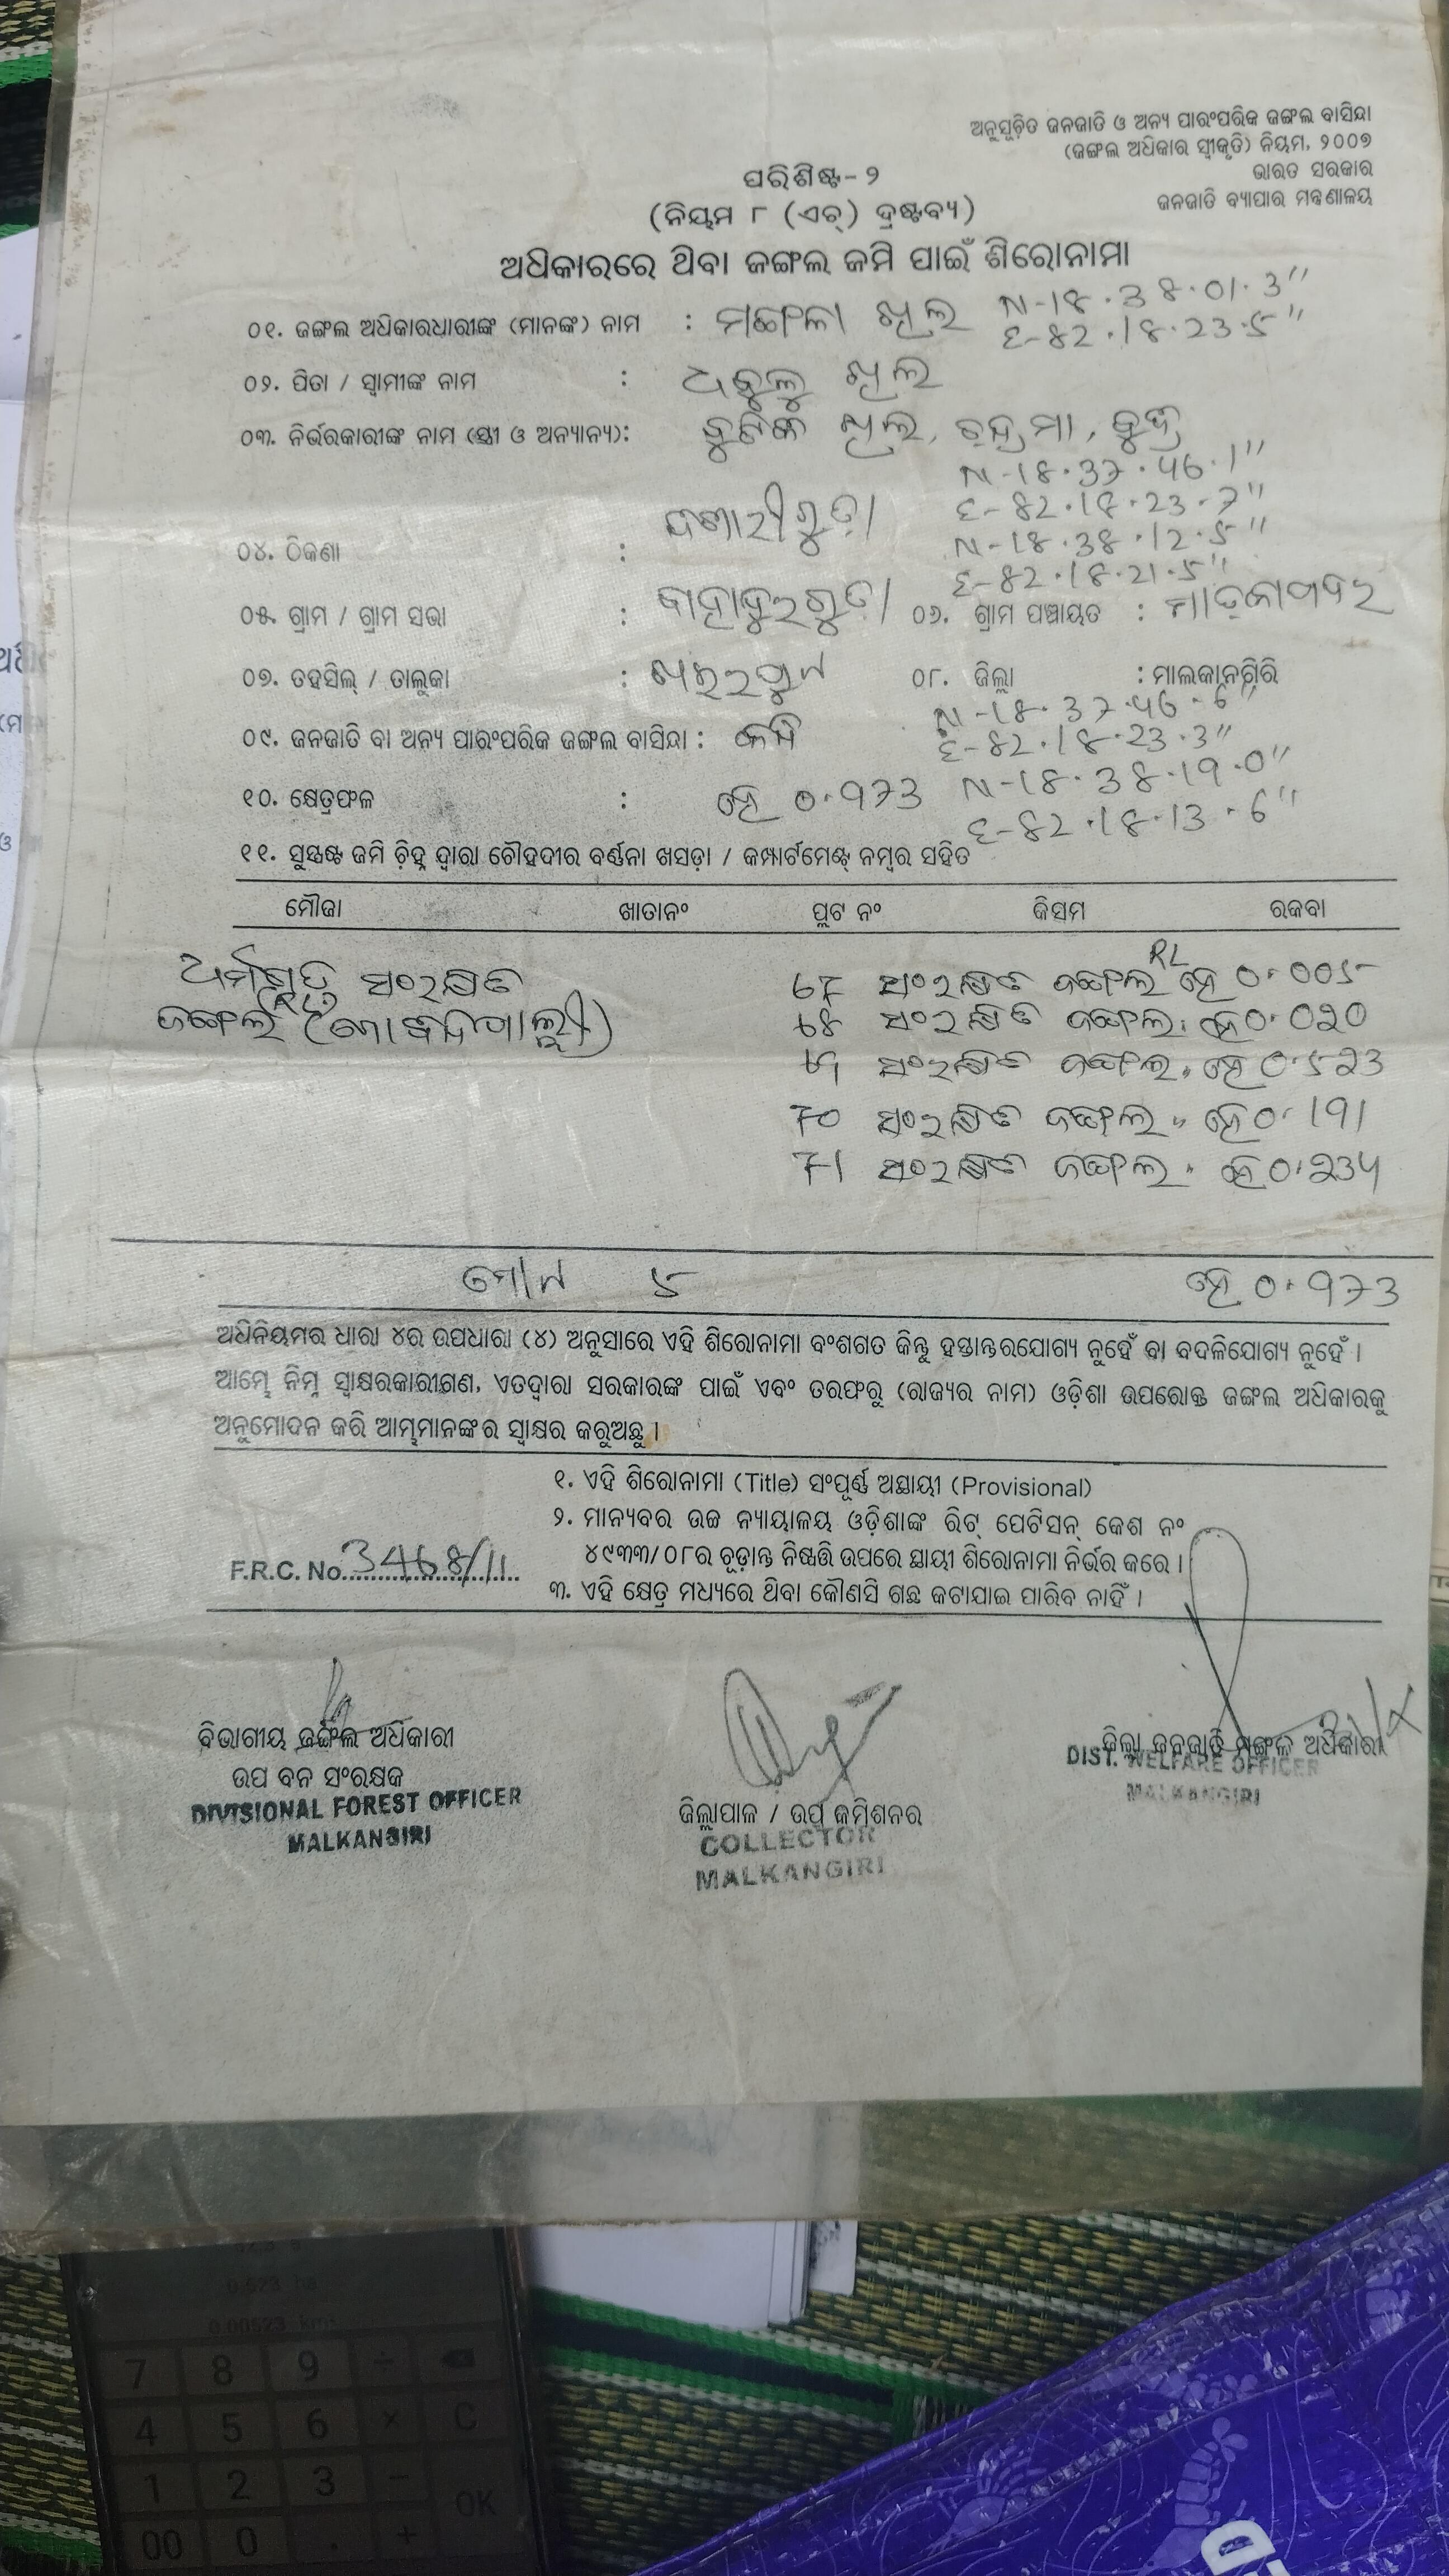 ଅନୁସୂଚିତ ଜନଜାତି ଓ ଅନ୍ୟ ପାରଂପରିକ ଜଙ୍ଗଲ ବାସିନ୍ଦା
(ଜଙ୍ଗଲ ଅଧିକାର ସ୍ୱୀକୃତି) ନିୟମ, ୨୦୦୭
ଭାରତ ସରକାର
ଜନଜାତି ବ୍ୟାପାର ମନ୍ତ୍ରଣାଳୟ
ପରିଶିଷ୍ଟ-୨
(ନିୟମ ୮ (ଏଚ୍) ଦ୍ରଷ୍ଟବ୍ୟ)
ଅଧିକାରରେ ଥିବା ଜଙ୍ଗଲ ଜମି ପାଇଁ ଶିରୋନାମା
୦୧. ଜଙ୍ଗଲ ଅଧିକାରଧାରୀଙ୍କ (ମାନଙ୍କ) ନାମ : ମଙ୍ଗଳା ଖିଲ N-18.38.01.3"
E-82.18.23.5"
୦୨. ପିତା / ସ୍ୱାମୀଙ୍କ ନାମ : ଖିଲ
୦୩. ନିର୍ଭରକାରୀଙ୍କ ନାମ (ସ୍ତ୍ରୀ ଓ ଅନ୍ୟାନ୍ୟ): ଖିଲ,
N-18.37.46.1"
E-82.18.23.7"
N-18.38.12.5"
E-82.18.21.5"
୦୪. ଠିକଣା :
୦୫. ଗ୍ରାମ / ଗ୍ରାମ ସଭା : ବାହାଦୁରଗୁଡ଼ା ୦୬. ଗ୍ରାମ ପଞ୍ଚାୟତ :
୦୭. ତହସିଲ୍ / ତାଲୁକା : ଖଇରପୁଟ ୦୮. ଜିଲ୍ଲା : ମାଲକାନଗିରି
N-18.37.46.6"
E-82.18.23.3"
୦୯. ଜନଜାତି ବା ଅନ୍ୟ ପାରଂପରିକ ଜଙ୍ଗଲ ବାସିନ୍ଦା :
୧୦. କ୍ଷେତ୍ରଫଳ : ହେ 0.973 N-18.38.19.0"
E-82.18.13.6"
୧୧. ସୁସ୍ପଷ୍ଟ ଜମି ଚିହ୍ନ ଦ୍ୱାରା ଚୌହଦୀର ବର୍ଣ୍ଣନା ଖସଡ଼ା / କମ୍ପାର୍ଟମେଣ୍ଟ୍ ନମ୍ବର ସହିତ
ମୌଜା ଖାତାନଂ ପ୍ଲଟ ନଂ କିସମ ରକବା
ସଂରକ୍ଷିତ 67 ସଂରକ୍ଷିତ ଜଙ୍ଗଲ RL ହେ 0.005
ଜଙ୍ଗଲ 68 ସଂରକ୍ଷିତ ଜଙ୍ଗଲ " ହେ 0.020
69 ସଂରକ୍ଷିତ ଜଙ୍ଗଲ " ହେ 0.523
70 ସଂରକ୍ଷିତ ଜଙ୍ଗଲ " ହେ 0.191
71 ସଂରକ୍ଷିତ ଜଙ୍ଗଲ " ହେ 0.234
ମୋଟ 5 ହେ 0.973
ଅଧିନିୟମର ଧାରା ୪ର ଉପଧାରା (୪) ଅନୁସାରେ ଏହି ଶିରୋନାମା ବଂଶଗତ କିନ୍ତୁ ହସ୍ତାନ୍ତରଯୋଗ୍ୟ ନୁହେଁ ବା ବଦଳିଯୋଗ୍ୟ ନୁହେଁ ।
ଆମ୍ଭେ ନିମ୍ନ ସ୍ୱାକ୍ଷରକାରୀଗଣ, ଏତଦ୍ୱାରା ସରକାରଙ୍କ ପାଇଁ ଏବଂ ତରଫରୁ (ରାଜ୍ୟର ନାମ) ଓଡ଼ିଶା ଉପରୋକ୍ତ ଜଙ୍ଗଲ ଅଧିକାରକୁ
ଅନୁମୋଦନ କରି ଆମ୍ଭମାନଙ୍କର ସ୍ୱାକ୍ଷର କରୁଅଛୁ ।
୧. ଏହି ଶିରୋନାମା (Title) ସଂପୂର୍ଣ୍ଣ ଅସ୍ଥାୟୀ (Provisional)
୨. ମାନ୍ୟବର ଉଚ୍ଚ ନ୍ୟାୟାଳୟ ଓଡ଼ିଶାଙ୍କ ରିଟ୍ ପେଟିସନ୍ କେଶ ନଂ
୪୯୩୩/୦୮ର ଚୂଡ଼ାନ୍ତ ନିଷ୍ପତ୍ତି ଉପରେ ସ୍ଥାୟୀ ଶିରୋନାମା ନିର୍ଭର କରେ ।
F.R.C. No. 3468/11
୩. ଏହି କ୍ଷେତ୍ର ମଧ୍ୟରେ ଥିବା କୌଣସି ଗଛ କଟାଯାଇ ପାରିବ ନାହିଁ ।
ବିଭାଗୀୟ ଜଙ୍ଗଲ ଅଧିକାରୀ
ଉପ ବନ ସଂରକ୍ଷକ
DIVISIONAL FOREST OFFICER
MALKANGIRI
ଜିଲ୍ଲାପାଳ / ଉପ କମିଶନର
COLLECTOR
MALKANGIRI
ଜିଲ୍ଲା ଜନଜାତି ମଙ୍ଗଳ ଅଧିକାରୀ
DIST. WELFARE OFFICER
MALKANGIRI
7 8 9 ÷
4 5 6 × C
1 2 3 −
00 0 . + OK